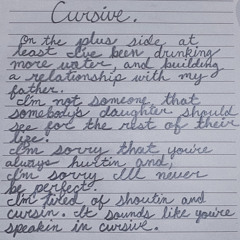 Cursive.
On the plus side at
least I've been drinking
more water, and building
a relationship with my
father.
I'm not someone that
somebody's daughter should
see for the rest of their
life.
I'm sorry that you're
always hurtin and,
I'm sorry I'll never
be perfect.
I'm tired of shoutin and
cursin. It sounds like you're
speakin in cursive.